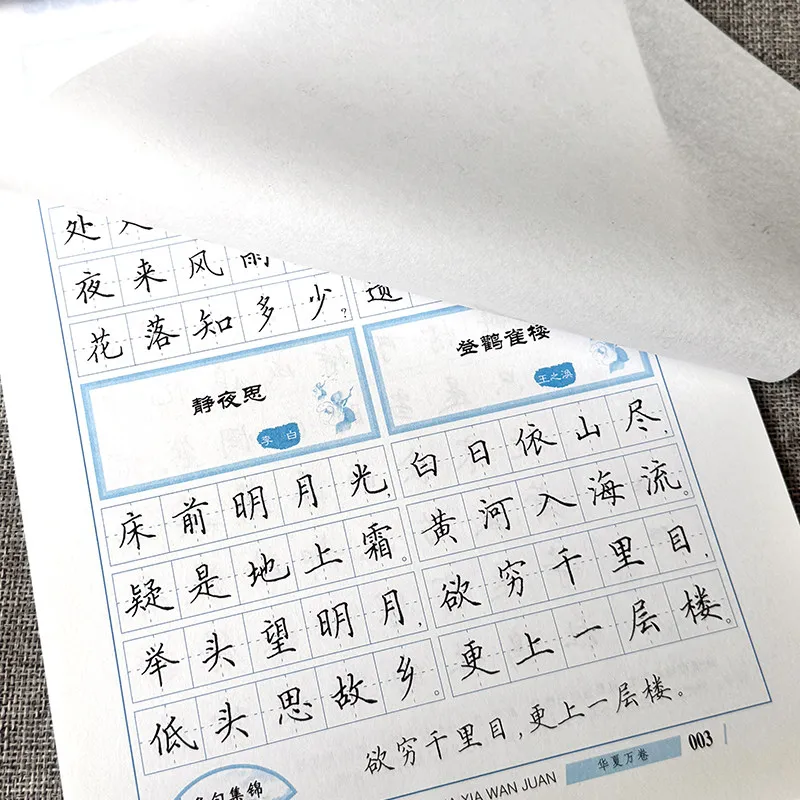 处
夜来风雨
花落知多少?
遗
静夜思
李白
床前明月光,
疑是地上霜。
举头望明月,
低头思故乡。
登鹳雀楼
王之涣
白日依山尽,
黄河入海流。
欲穷千里目,
更上一层楼。
欲穷千里目,更上一层楼。
名句集锦
XIA WAN JUAN
华夏万卷
003